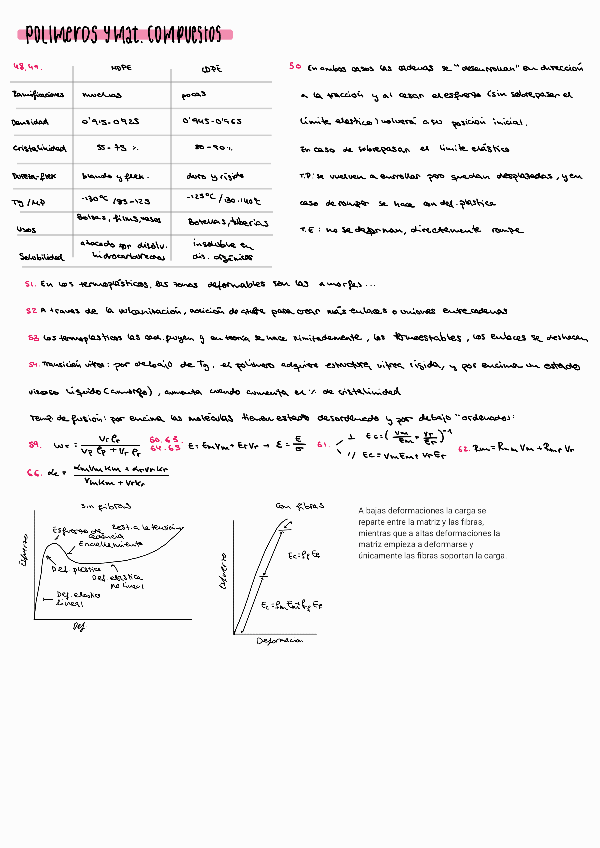 POLIMEROS Y Mat. COMPUESTOS
48.49. HDPE LDPE
Ramificaciones muchas pocas
Densidad 0'915-0'925 0'945-0'965
Cristalinidad 55-75 % 80-90 %
Dureza-flex blando y flex. duro y rigido
Tg/MP -130ºC /95-125 -125ºC /130.140ºC
Usos Bolsas, films, vasos Botellas, tuberias
Solubilidad atacado por disolv. hidrocarburados insoluble en dis. orgánicos
50 En ambos casos las cadenas se "desenrollan" en dirección
a la tracción y al cesar el esfuerzo (sin sobrepasar el
límite elástico) volverá a su posición inicial.
En caso de sobrepasar el límite elástico
T.P: se vuelven a enrollar pero quedan desplazadas, y en
caso de romper se hace con def. plástica
T.E: no se deforman, directamente rompe
51. En los termoplásticos, las zonas deformables son las amorfas...
52 A traves de la vulcanización, adición de azufre para crear más enlaces o uniones entre cadenas
53 Los termoplasticos las cad. fluyen y en teoría se hace ilimitadamente, los termoestables, los enlaces se deshacen
54. Transición vítrea: por debajo de Tg. el polímero adquiere estructura vítrea rígida, y por encima un estado
viscoso líquido (amorfo), aumenta cuando aumenta el % de cristalinidad
Temp de fusión: por encima las moleculas tienen estado desordenado y por debajo "ordenados:
59. Wf = Vf ρf / Vp ρp + Vf ρf 60. 63. 64. 65 E = Em Vm + Ef Vf → ε = E/σ 61. ⊥ Ec = (Vm/Em + Vf/Ef)⁻¹
// Ec = Vm Em + Vf Ef 62. Rm = Rmm Vm + Rmf Vf
66. αc = αm Vm Km + αf Vf Kf / Vm Km + Vf Kf
Sin fibras
Esfuerzo
Esfuerzo de cedencia
Rest. a la tensión
Encuellamiento
Def plástica
Def. elastica no lineal
Def. elastica lineal
Def
Con fibras
Esfuerzo
Deformacion
A bajas deformaciones la carga se
reparte entre la matriz y las fibras,
mientras que a altas deformaciones la
matriz empieza a deformarse y
únicamente las fibras soportan la carga.